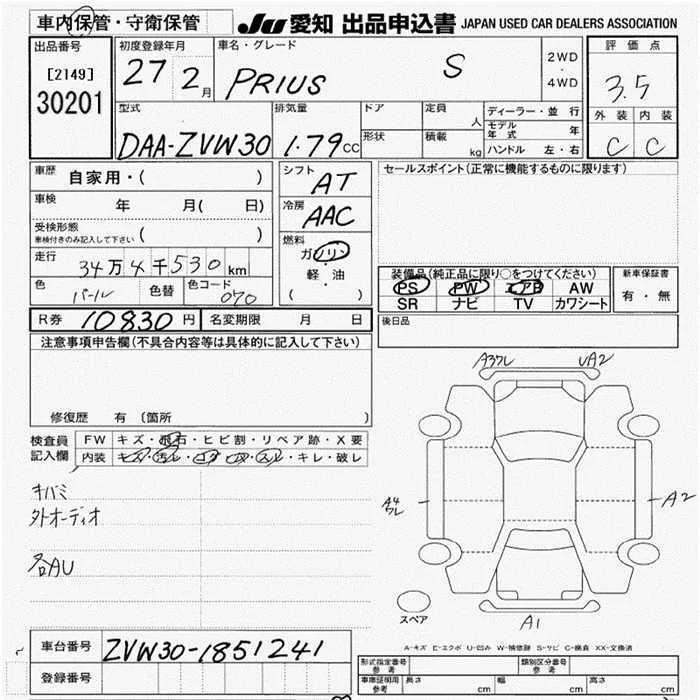 車内保管・守衛保管
JU 愛知 出品申込書 JAPAN USED CAR DEALERS ASSOCIATION
出品番号
[2149]
30201
初度登録年月
27 2月
車名・グレード
PRIUS S
2WD
・
4WD
評価点
3.5
外装 内装
C C
型式
DAA-ZVW30
排気量
1.79cc
ドア
形状
定員
人
積載
kg
ディーラー・並行
モデル年式 年
ハンドル 左・右
車歴
自家用・( )
車検
年 月( 日)
受検形態
車検付きのみ記入して下さい ( )
走行
34万4千530km
色
パール
色替
色コード
070
シフト
AT
冷房
AAC
燃料
ガソリン
・
軽・油
( )
セールスポイント(正常に機能するものに限ります)
装備品(純正品に限り○をつけてください)
PS PW エアB AW
SR ナビ TV カワシート
新車保証書
有・無
R券 10830円 名変期限 月 日
後日品
注意事項申告欄(不具合内容等は具体的に記入して下さい)
修復歴 有 〔箇所 〕
検査員
記入欄
FW キズ・飛石・ヒビ割・リペア跡・X要
内装 キズ・汚レ・コゲ・穴・スレ・キレ・破レ
キバミ
外オーディオ
各AU
A3ワレ UA2
A4
ワレ
A2
A1
スペア
A-キズ E-エクボ U-凹み W-補修跡 S-サビ C-腐食 XX-交換済
車台番号 ZVW30-1851241
登録番号
形式指定番号
参考
類別区分番号
参考
車庫証明用
参考
長さ cm 幅 cm 高さ cm